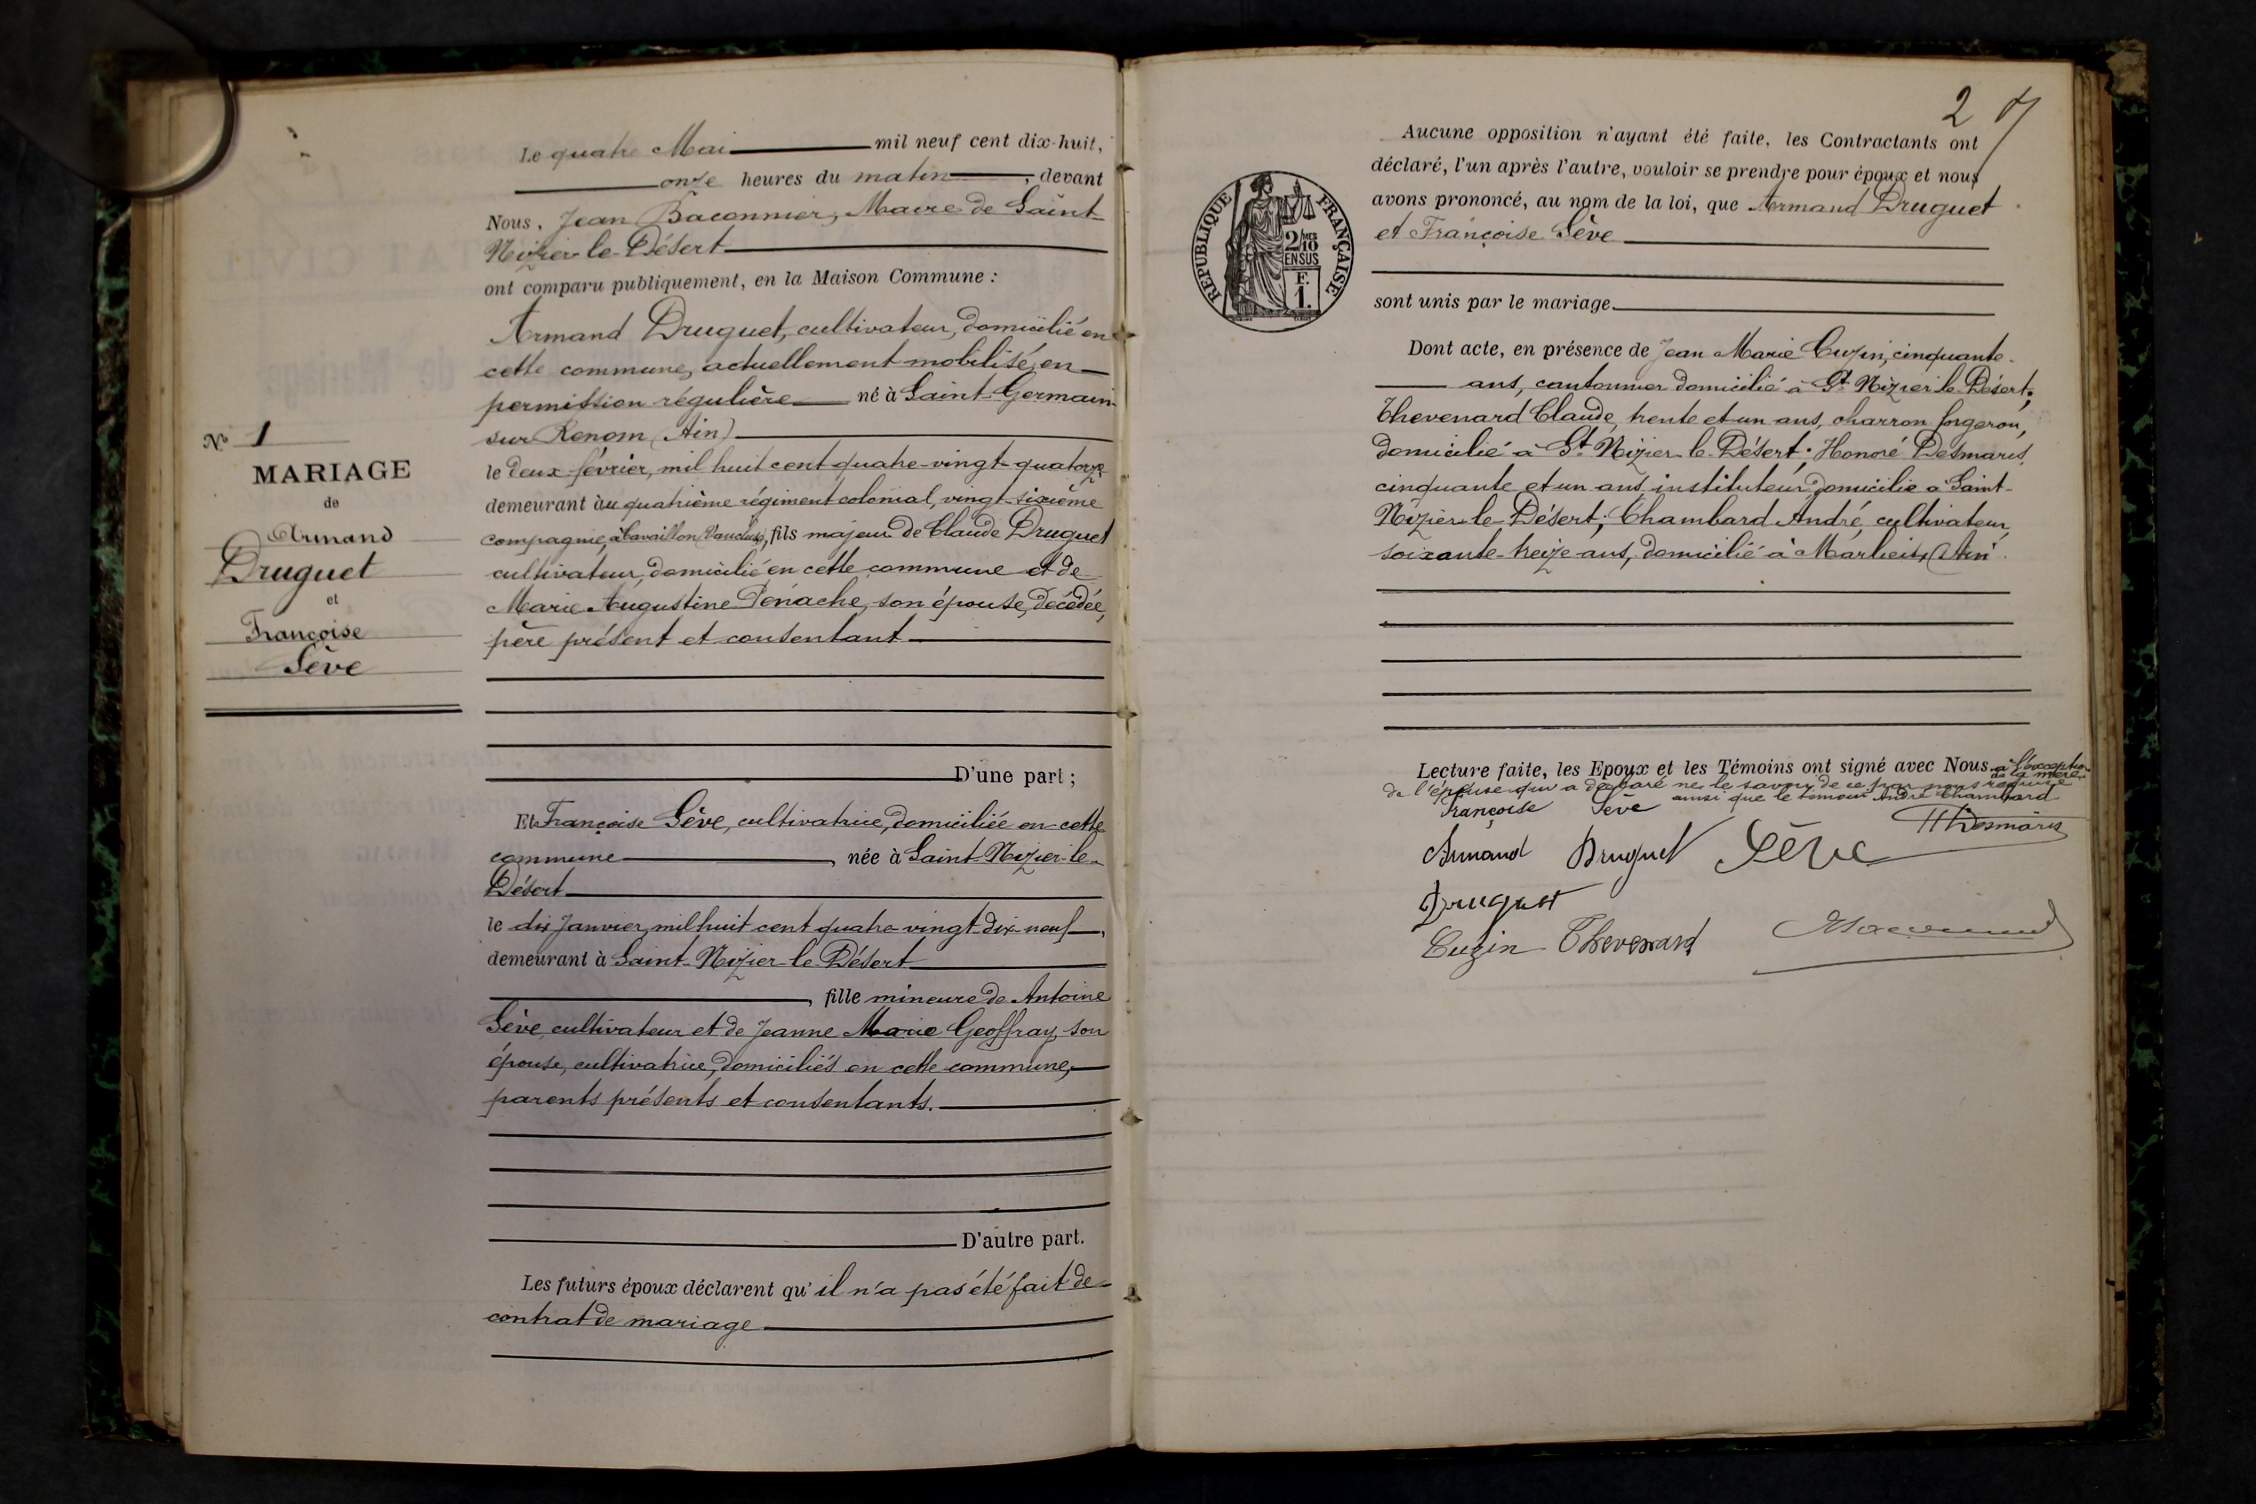 Le quatre Mai mil neuf cent dix-huit,
onze heures du matin, devant
Nous, Jean Baconnier, Maire de Saint-
Nizier-le-Désert
ont comparu publiquement, en la Maison Commune :
Armand Druguet, cultivateur, domicilié en
cette commune, actuellement mobilisé, en
permission régulière né à Saint-Germain-
sur Renom (Ain)
le deux février, mil huit cent quatre-vingt-quatorze
demeurant au quatrième régiment colonial, vingt-sixième
compagnie, à Cavaillon (Vaucluse), fils majeur de Claude Druguet
cultivateur, domicilié en cette commune et de
Marie Augustine Pénache, son épouse, décédée,
père présent et consentant
D'une part ;
N° 1
MARIAGE
de
Armand
Druguet
et
Françoise
Sève
Et Françoise Sève, cultivatrice, domiciliée en cette
commune, née à Saint-Nizier-le-
Désert
le dix Janvier, mil huit cent quatre-vingt-dix-neuf,
demeurant à Saint-Nizier-le-Désert
, fille mineure de Antoine
Sève, cultivateur et de Jeanne Marie Geoffray, son
épouse, cultivatrice, domiciliés en cette commune,
parents présents et consentants.
D'autre part.
Les futurs époux déclarent qu'il n'a pas été fait de
contrat de mariage
2
Aucune opposition n'ayant été faite, les Contractants ont
déclaré, l'un après l'autre, vouloir se prendre pour époux et nous
avons prononcé, au nom de la loi, que Armand Druguet
et Françoise Sève
sont unis par le mariage.
RÉPUBLIQUE FRANÇAISE
2/10 MES
EN SUS
F.
1.
Dont acte, en présence de Jean Marie Cuzin, cinquante-
ans, cantonnier domicilié à St Nizier-le-Désert;
Thevenard Claude, trente et un ans, charron forgeron,
domicilié à St Nizier-le-Désert; Honoré Desmaris,
cinquante et un ans instituteur domicilié à Saint-
Nizier-le-Désert; Chambard André, cultivateur,
soixante-treize ans, domicilié à Marlieux (Ain
Lecture faite, les Epoux et les Témoins ont signé avec Nous à l'exception
de la mère
de l'épouse qui a déclaré ne le savoir de ce par nous requise
ainsi que le témoin André Chambard
Françoise Sève
HDesmaris
Armand Druguet Sève
Druguet
Cuzin Thevenard